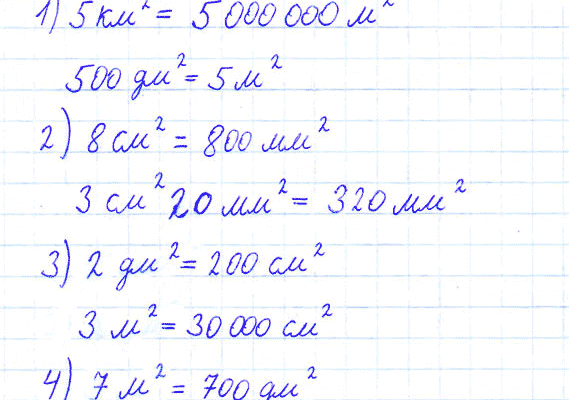 1) 5 км² = 5 000 000 м²
500 дм² = 5 м²
2) 8 см² = 800 мм²
3 см² 20 мм² = 320 мм²
3) 2 дм² = 200 см²
3 м² = 30 000 см²
4) 7 м² = 700 дм²